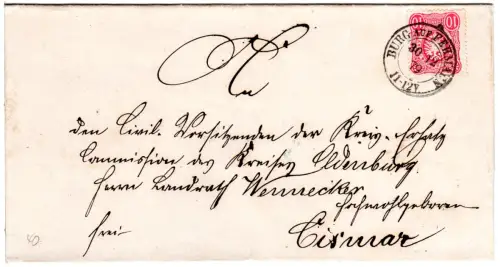 An
den Civil-Vorsitzenden der Kreis-Ersatz
Commission des Kreises Oldenburg
Herrn Landrath Wennecker
Hochwohlgeboren
frei
Cismar
BURG AUF FEHMARN
30 12
79
11-12V.
10